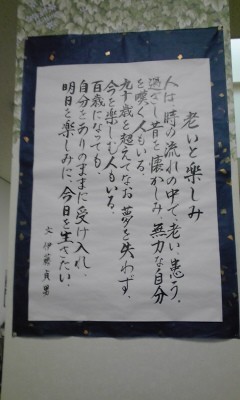 老いと楽しみ
人は、時の流れの中で、老い、患う。
過ぎし昔を懐かしみ、無力な自分
を嘆く人もいる。
九十歳を超えてなお、夢を失わず、
今を楽しむ人もいる。
百歳になっても、
自分をありのままに受け入れ、
明日を楽しみに、今日を生きたい。
文 伊藤貞男